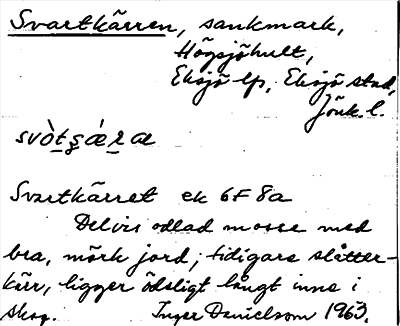 Svartkärren, sankmark,
Högsjöhult,
Eksjö lfs, Eksjö stad,
Jönk. l.
svòt̠ʂǽr̠æ
Svartkärret ek 6F 8a
Delvis odlad mosse med
bra, mörk jord; tidigare slåtter-
kärr, ligger ödsligt långt inne i
skog. Inger Danielsson 1963.